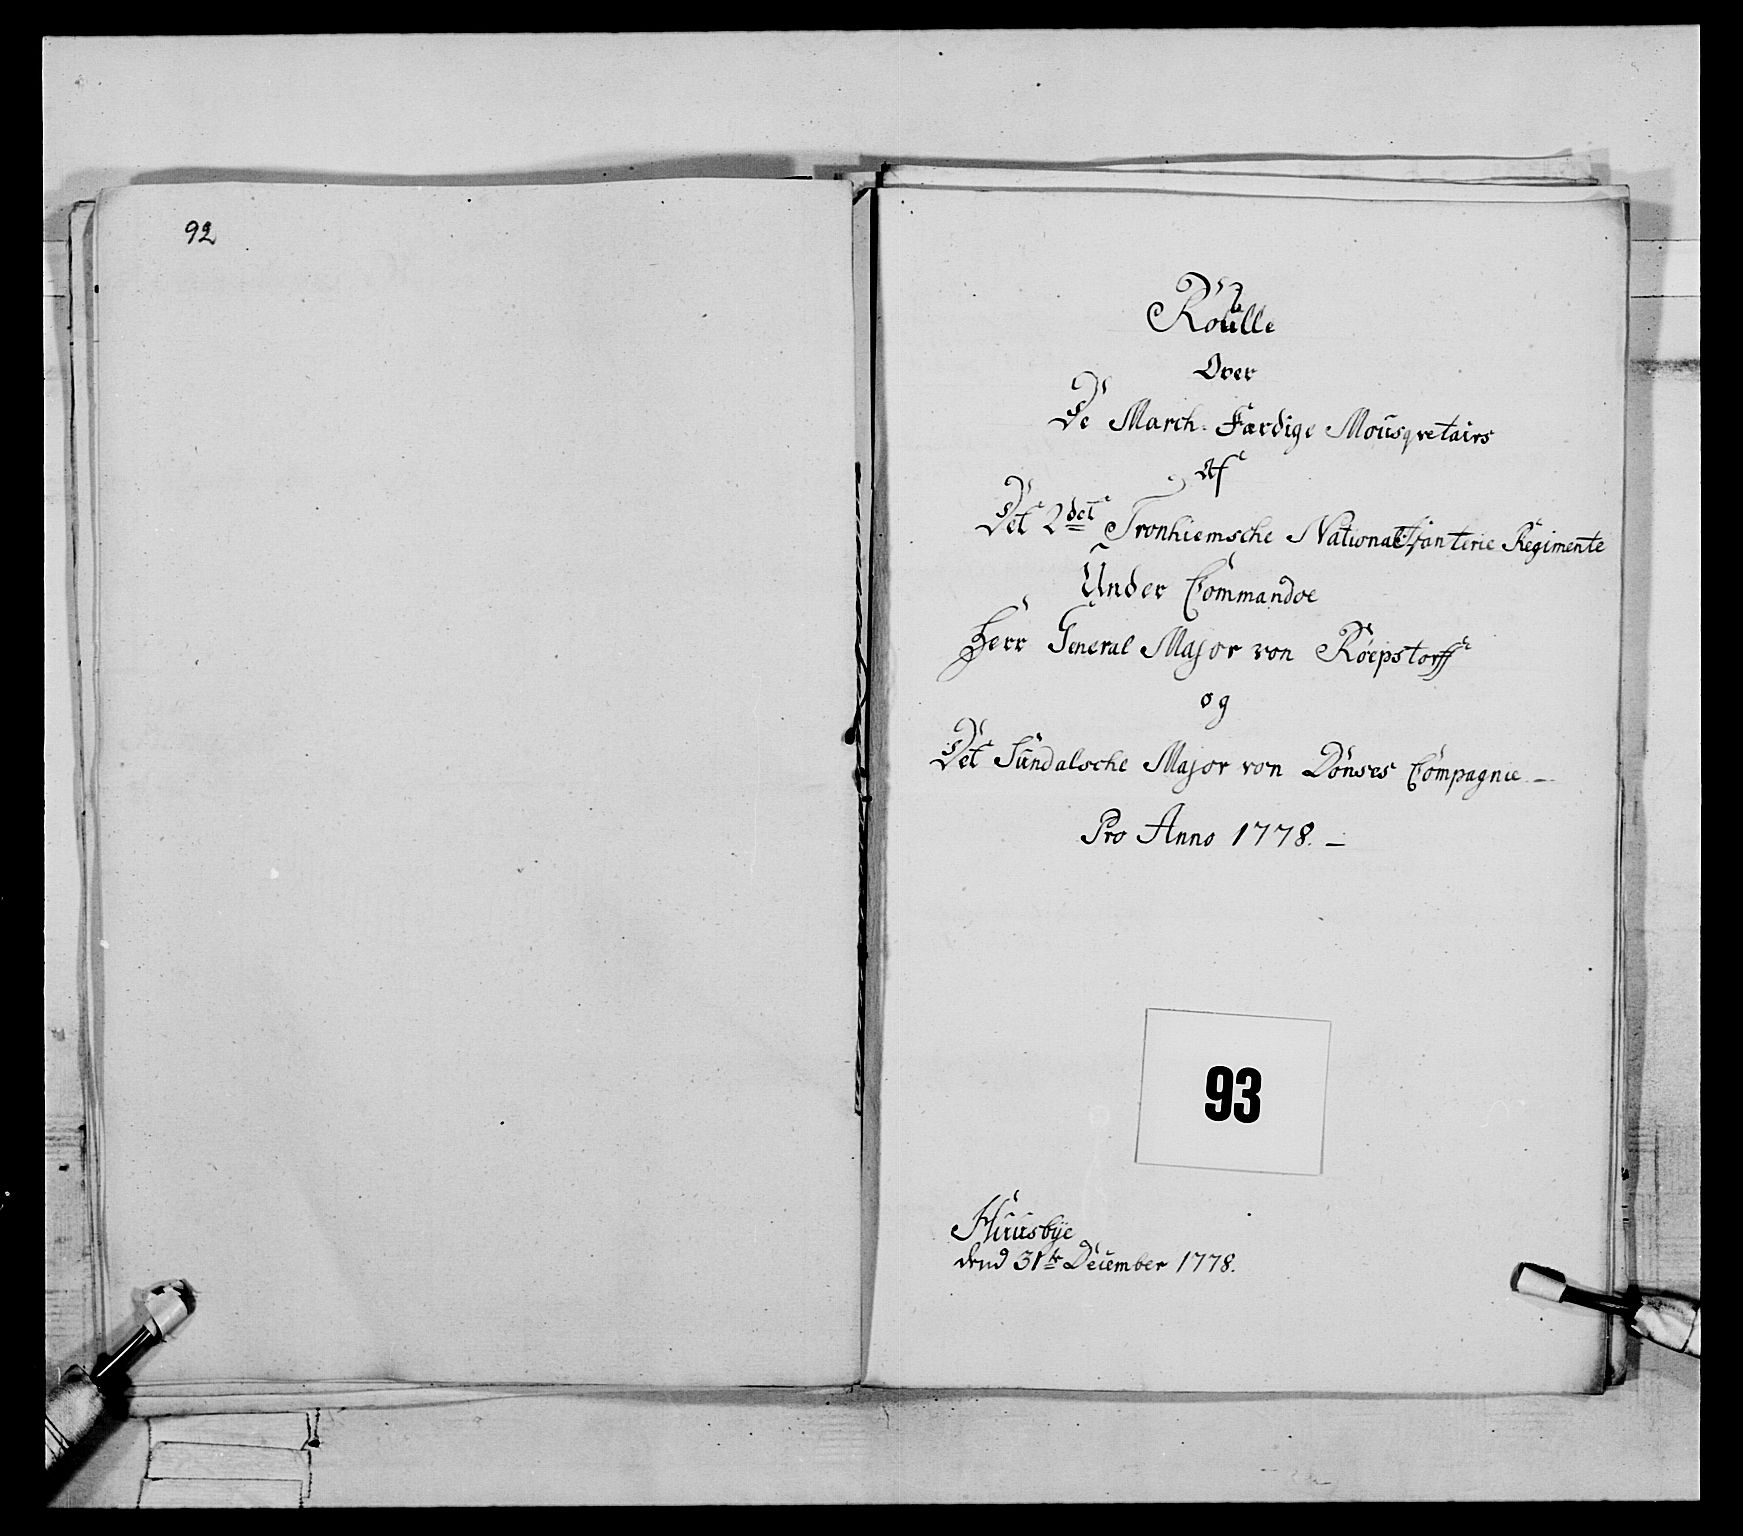 92
Roulle
Over
De March. Færdige Mousqvetairs
Af
Det 2det Tronhiemsche National Infanterie Regimente
Under Commandoe
Herr General Major von Røepstorff
og
Det Sundalsche Major von Dønses Compagnie
Pro Anno 1778.
93
Huusbÿe
dend 31te December 1778.